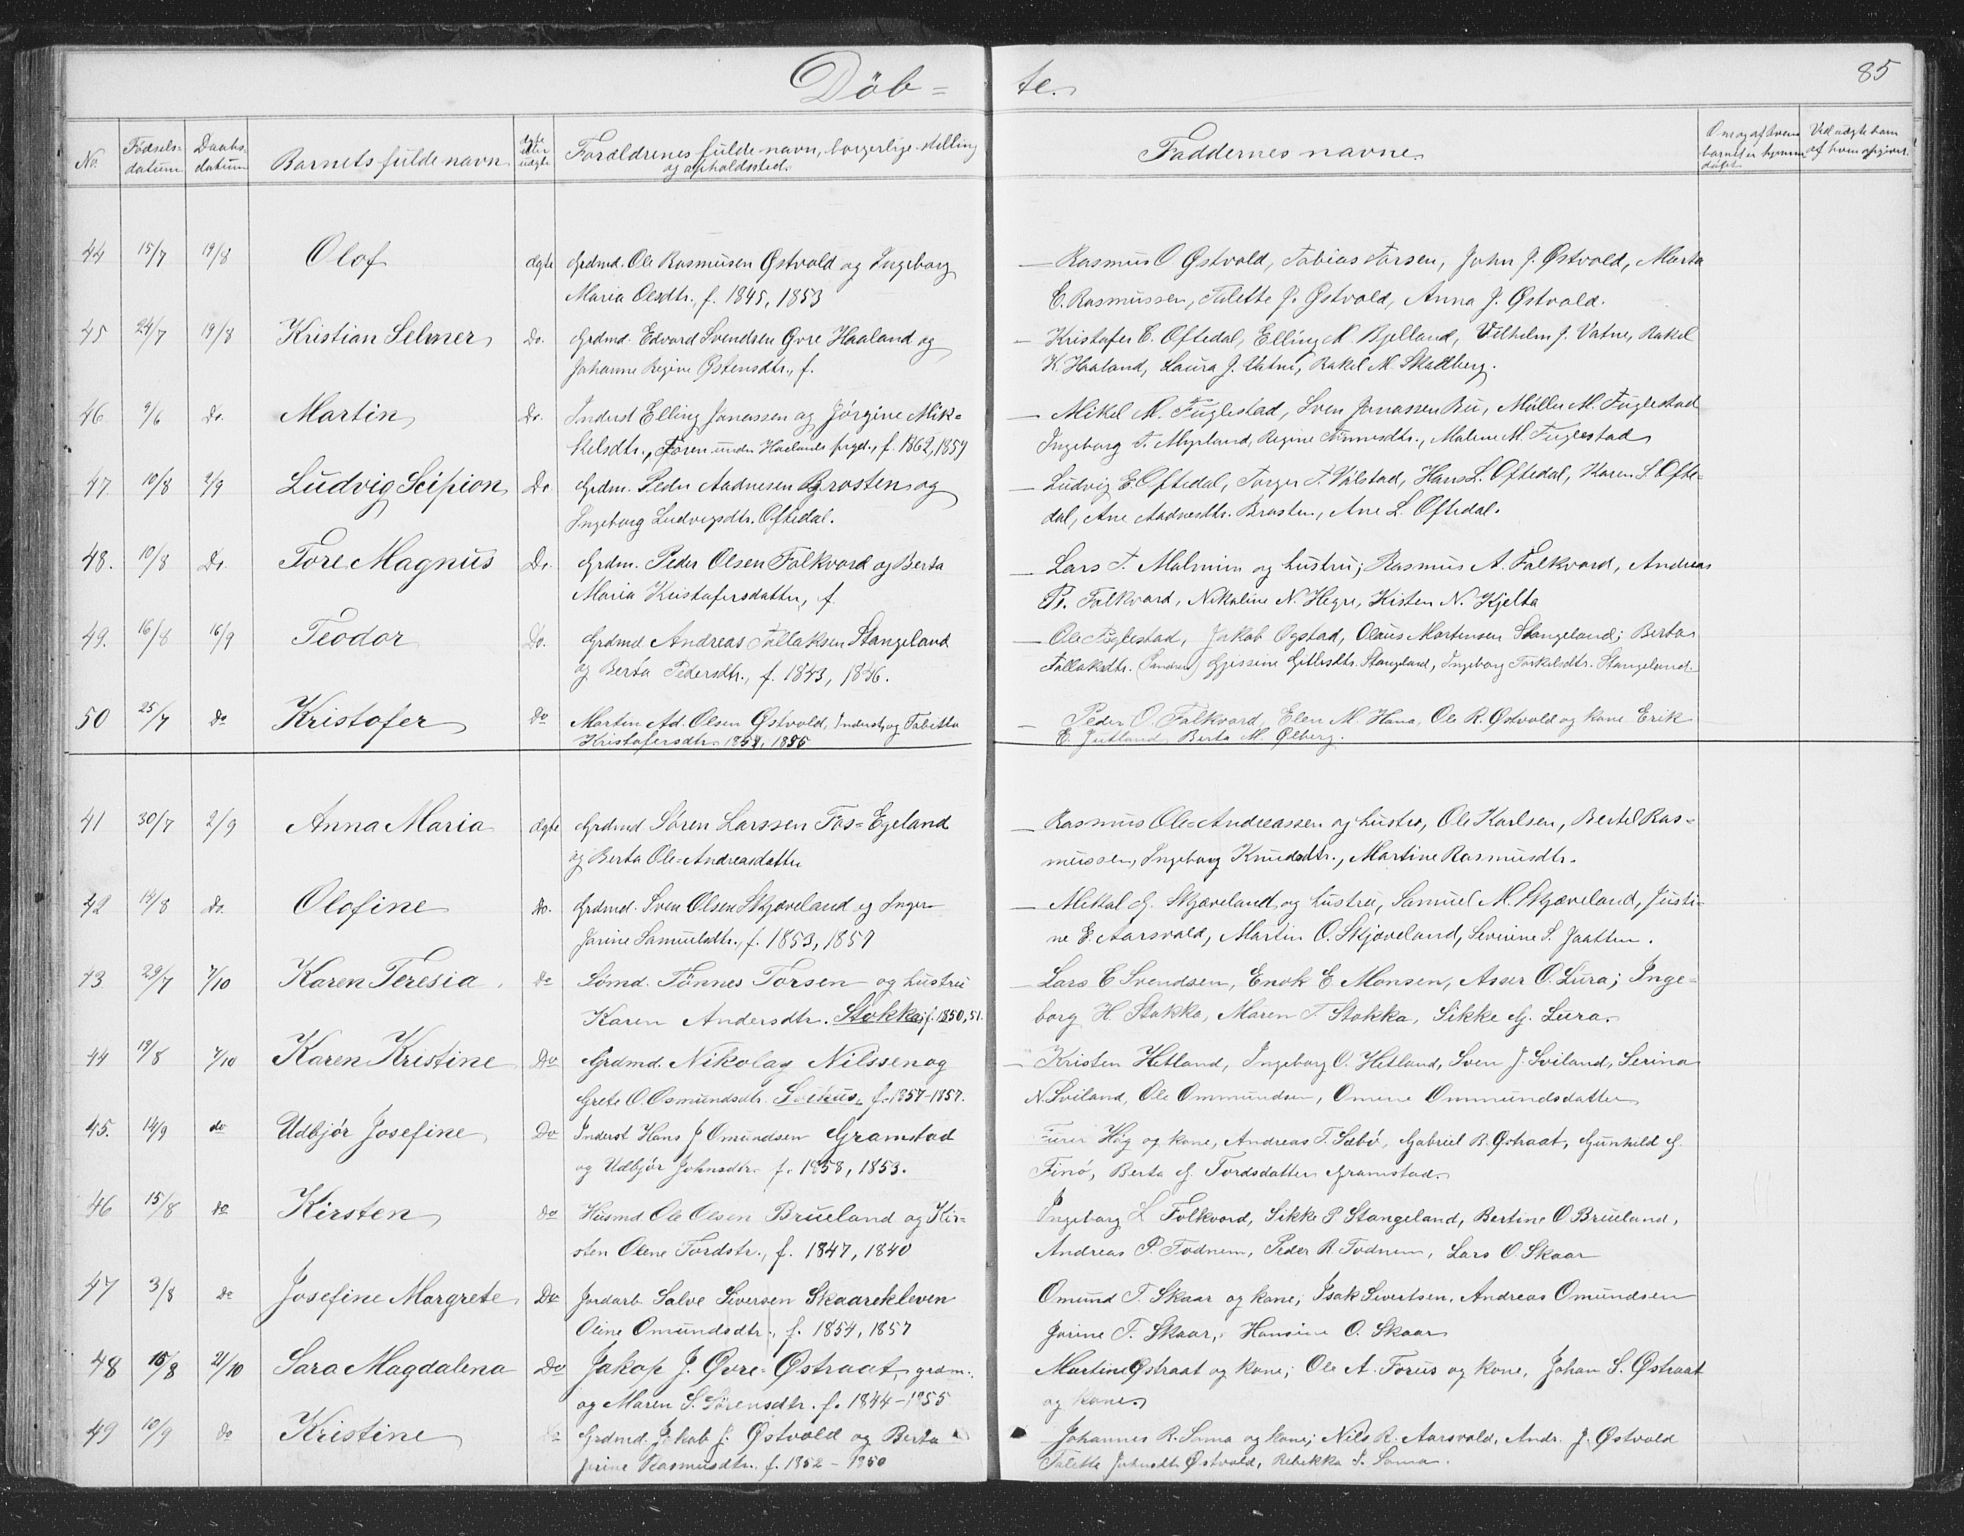 Döb= te. 85
No. Fødsels-datum Daabs-datum Barnets fulde navn ægte eller uægte Forældrenes fulde navn, borgerlige stilling og opholdssted. Faddernes navne
44 15/7 19/8 Olof ægte Grdmd. Ole Rasmusen Østvold og Ingeborg — Rasmus O. Østvold, Tobias Torsen, John J. Østvold, Marta
Maria Olsdtr., f. 1845, 1853 E. Rasmussen, Talette J. Østvold, Anna J. Østvold.
45 24/7 19/8 Kristian Selmer Do. Grdmd. Edvard Svendsen Gvre Haaland og — Kristofer C. Oftedal, Elling M. Bjelland, Vilhelm J. Vatne, Rakel
Johanne Regine Østensdtr., f. K. Haaland, Laura J. Vatne, Rakel M. Skadberg.
46 9/6 Do. Martin Do. Inderst Elling Jonassen og Jörgine Mik= — Mikel M. Fuglestad, Sven Jonassen Bu, Möller M. Fuglestad
kelsdtr., Foren under Haalands prgd., f. 1862, 1859 Ingeborg T. Myrland, Regine Tönnesdtr., Malene M. Fuglestad
47. 10/8 2/9 Ludvig Scipion Do Grdm. Peder Aadnesen Brosten og — Ludvig E. Oftedal, Torger T.Válstad, Hans L. Oftedal, Karen S. Ofte-
Ingeborg Ludvigsdtr. Oftedal. dal, Ane Aadnesdtr. Brosten, Ane L. Oftedal.
48. 10/8 Do. Tore Magnus Do. Grdm. Peder Olsen Folkvord og Berta — Lars T. Malmim og hustru; Rasmus A. Folkvord, Andreas
Maria Kristofersdatter, f. Ps. Folkvord, Nikoline N. Hegre, Kisten N. Kjelta
49. 16/8 16/9 Teodor Do. Grdmd Andreas Tollaksen Stangeland — Ole Fuglestad, Jakob Ogstad, Olaus Mortensen Stangeland; Berta
og Berta Pedersdtr., f. 1843, 1846. Tollaksdtr. (Sandnes) Gjissine Gitlesdtr. Stangeland, Ingeborg Torkelsdtr. Stangeland.
50 25/7 Do Kristofer Do Martin Ad. Olsen Østvold, Inderst, og Tabitta — Peder O. Folkvord, Elen M. Hana, Ole R. Østvold og kone Erik
Kristofersdtr. 1854, 1856 E. Jutland, Berta M. Ølberg.
41 30/7 2/9 Anna Maria ægte Grdmd Søren Larssen Fos=Egeland — Rasmus Ole=Andreassen og hustro, Ole Karlsen, Bertel Ras-
og Berta Ole=Andreasdatter mussen, Ingeborg Knudsdtr., Martine Rasmusdtr.
42 14/8 Do. Olofine Do. Grdmd. Sven Olsen Skjæveland og Inger — Mikal G. Skjæveland og hustru, Samuel M. Skjæveland, Justi-
Jorine Samuelsdtr., f. 1853, 1857 ne E. Aarsvold, Martin O. Skjæveland, Severine S. Jaatten.
43 29/7 7/10 Karen Teresia Do Sømd. Tönnes Torsen og hustru — Lars E Svendsen, Enok E. Monsen, Asser O. Lura; Inge-
Karen Andersdtr. Stokka, f. 1850, 51. borg H. Stokka, Maren T. Stokka, Sikke G. Lura.
44 19/8 7/10 Karen Kristine Do Grdmd. Nikolay Nilssen og — Kristen Hetland, Ingeborg O. Hetland, Sven J. Sviland, Serina
Grete O. Osmundsdtr. f. 1857-1857. N. Sviland, Ole Ommundsen, Omene Ommundsdatter
45. 14/9 do Udbjör Josefine Do Inderst Hans J. Omundsen Gramstad Høg og kone, Andreas T. Sæbö, Gabriel B. Østraat, Gunhild G.
og Udbjör Johnsdtr. f. 1858, 1853. Finö, Berta G. Tordsdatter Gramstad.
46 15/8 do Kirsten Do Husmd Ole Olsen Brueland og Kir= Ingeborg L Folkvord, Sikke P Stangeland, Bertine O Brueland,
sten Olene Tordstr., f. 1847, 1840 Andreas P. Todnem, Peder R. Todnem, Lars O. Skaar
47 3/8 Do Josefine Margrete Do Jordarb. Salve Siversen Skaarekleven Omund T. Skaar og kone; Isak Sivertsen, Andreas Omundsen
Oline Omundsdtr., f. 1854, 1857 Jorine T. Skaar, Hansine O. Skaar
48 15/8 21/10 Sara Magdalena Do Jakop J. Øvre-Østraat, grdm., Martin Østraat og kone; Ole A. Forus og kone, Johan S. Østraat
og Maren S. Sörensdtr. f. 1844–1855 og kone.
49 10/9 do Kristine Do Grdmd. Jakob J. Østvold og Berta Johannes R. Soma og kone; Nils R. Aarsvold, Andr. J. Østvold
Jorine Rasmusdtr. f. 1852 – 1850 Talette Johnsdtr Østvold, Rebekka J. Soma.